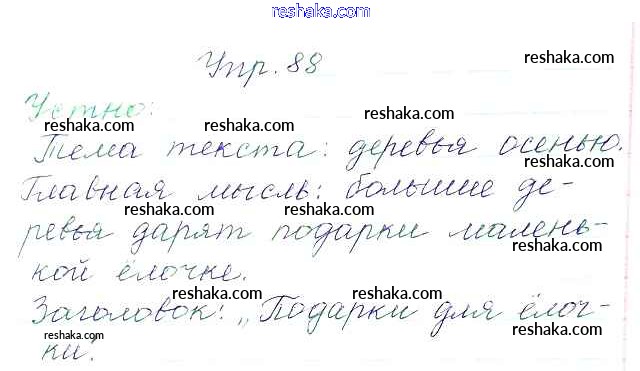 reshaka.com
Упр. 88
reshaka.com
Устно:
reshaka.com
reshaka.com reshaka.com
Тема текста: деревья осенью.
reshaka.com
Главная мысль: большие де-
reshaka.com reshaka.com
ревья дарят подарки малень-
reshaka.com
кой ёлочке.
reshaka.com reshaka.com
Заголовок: „Подарки для ёлоч-
reshaka.com
reshaka.com
ки.